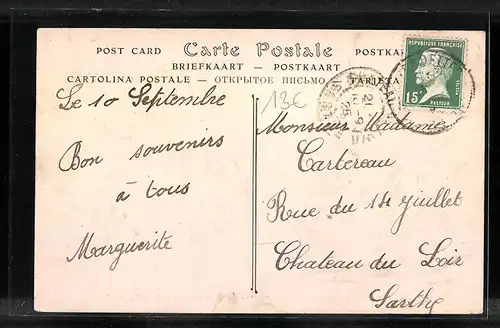 POST CARD Carte Postale POSTKA
BRIEFKAART — POSTKAART
CARTOLINA POSTALE — ОТКРЫТОЕ ПИСЬМО TARJETA
REPUBLIQUE FRANÇAISE
15c
POSTES
PASTEUR
13€
Le 10 Septembre
Bon souvenirs
à tous
Marguerite
Monsieur Madame
Cartereau
Rue du 14 juillet
Chateau du Loir
Sarthe